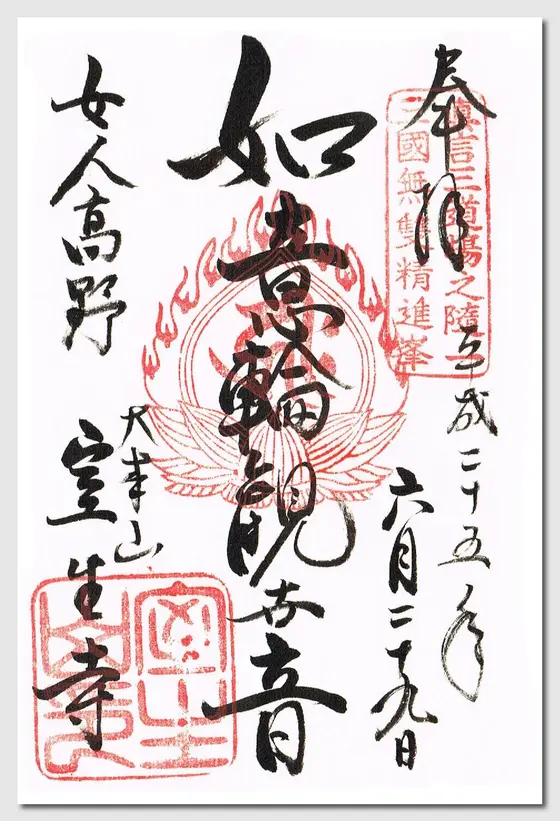 奉拝
真言三道場之随一
三國無雙精進峯
平成二十五年
六月二十九日
如意輪観世音
女人高野
大本山
室生寺